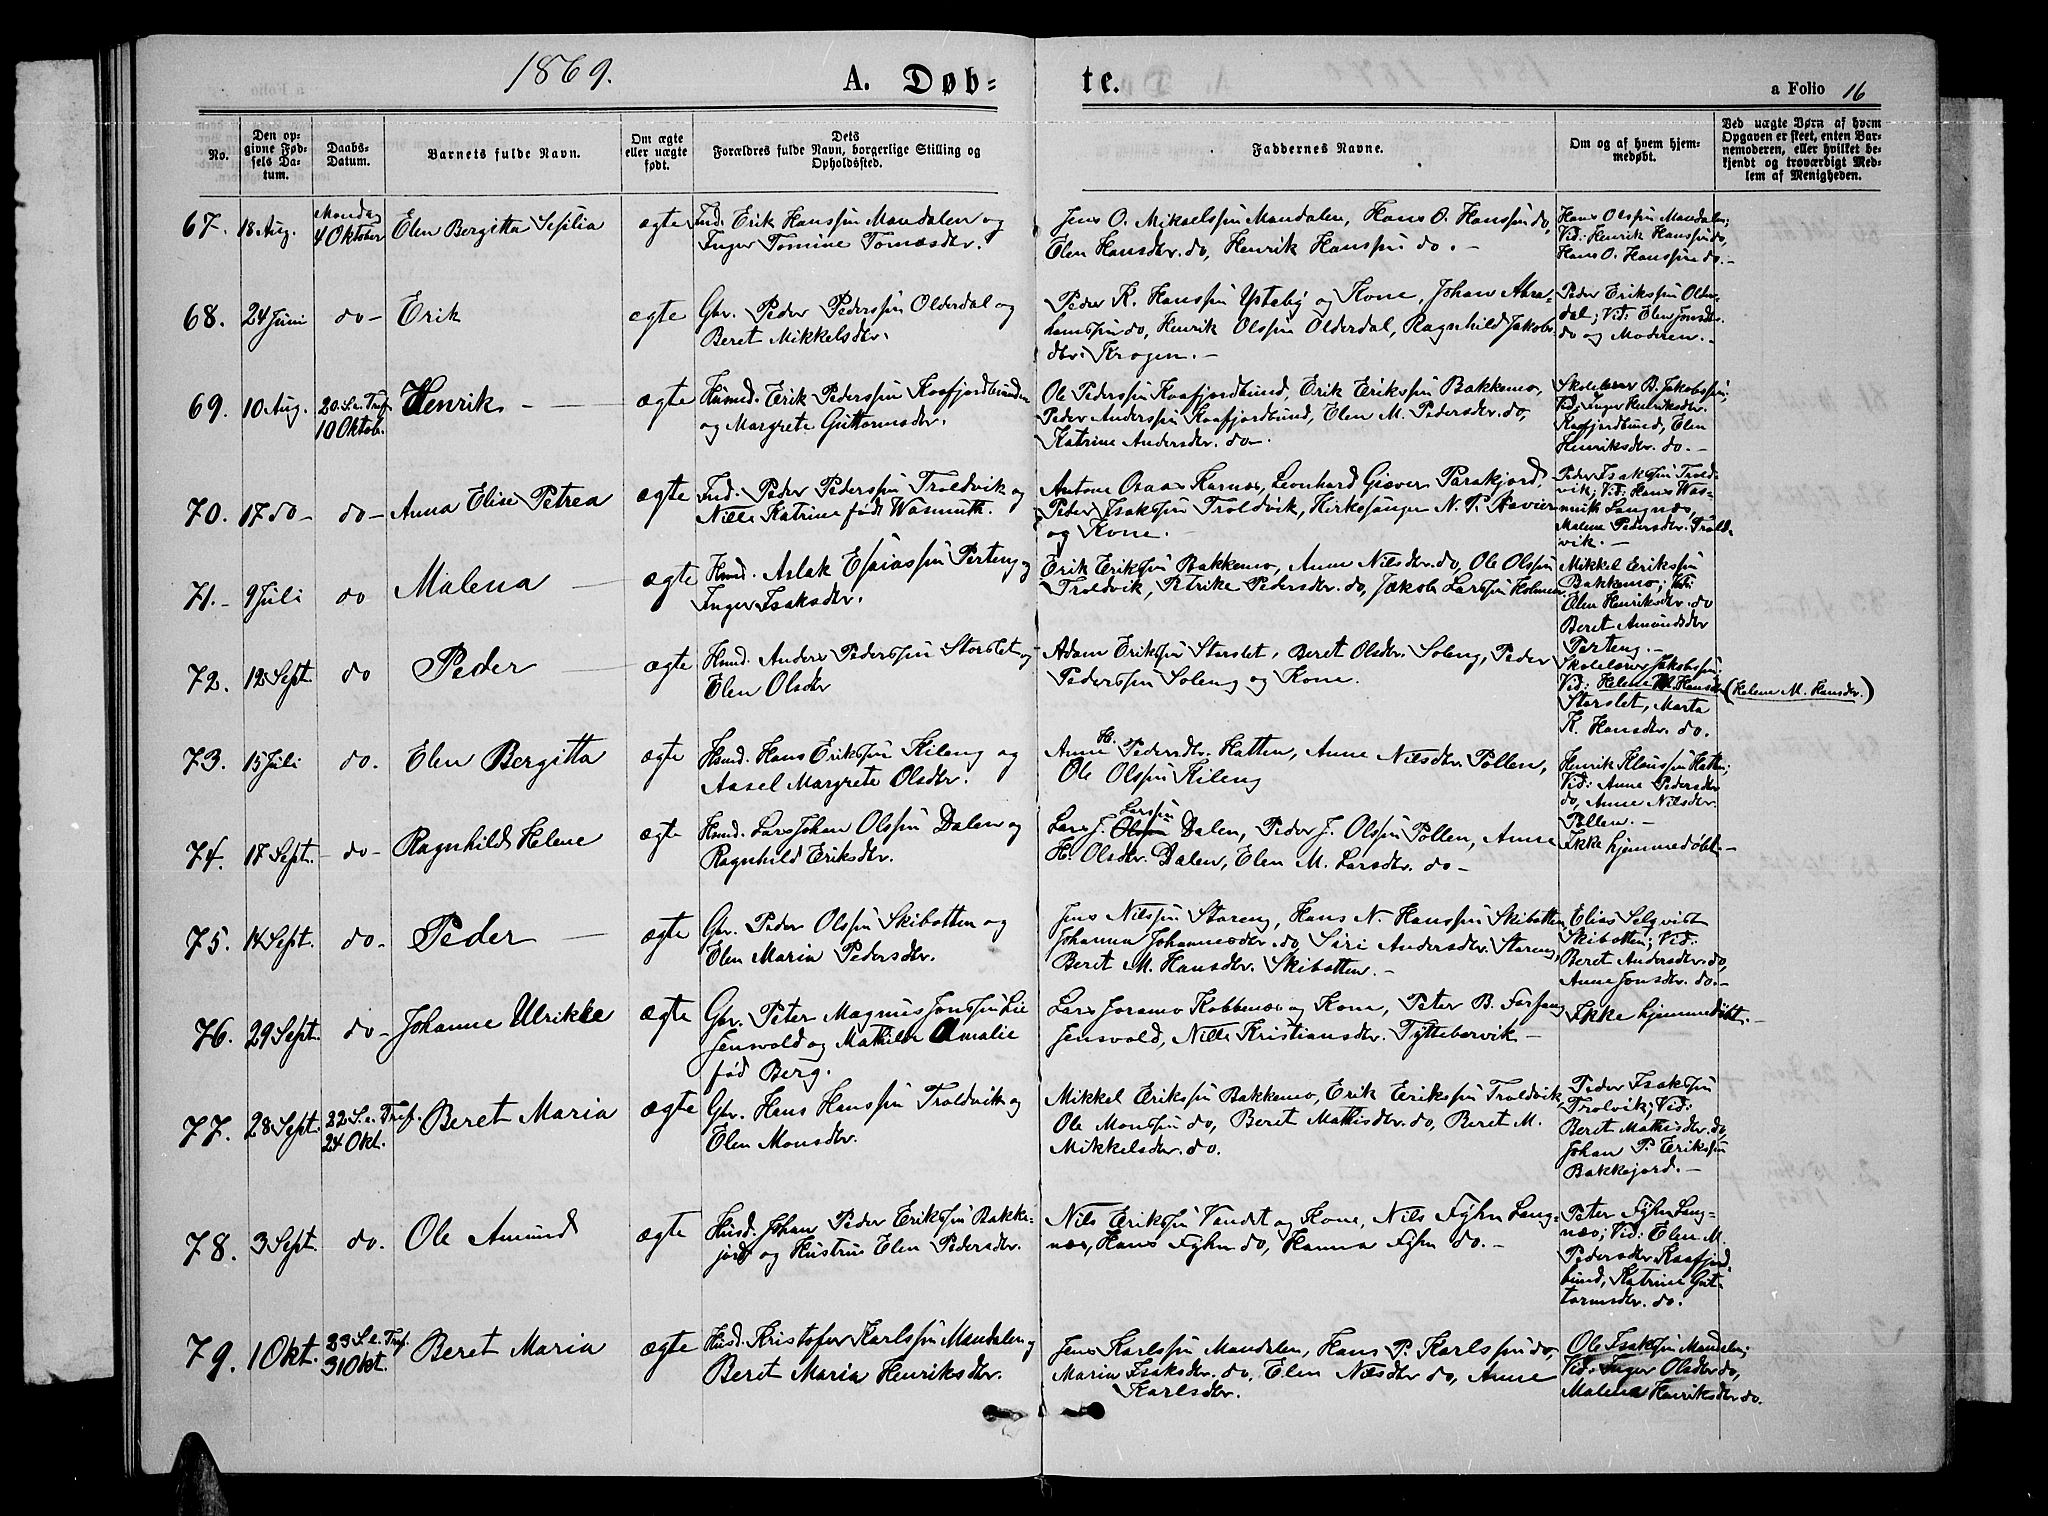 1869.
A. Døb-
te.
a Folio 16
No.
Den op-
givne Fød-
sels Da-
tum.
Daabs-
Datum.
Barnets fulde Navn.
Om ægte
eller uægte
født.
Dets
Forældres fulde Navn, borgerlige Stilling og
Opholdssted.
Faddernes Navne.
Om og af hvem hjem-
medøbt.
Ved uægte Børn af hvem
Opgaven er skeet, enten Bar-
nemoderen, eller hvilket be-
kjendt og troværdigt Med-
lem af Menigheden.
67. 18 Aug. Mandag
4 Oktober
Elen Bergitta Sesilia
ægte
Ind. Erik Hanssøn Mandalen og
Inger Tomine Tomasdtr.
Jens O. Mikaelssøn Mandalen, Hans O. Hanssøn do,
Elen Hansdtr. do, Henrik Hanssøn do. -
Hans Olssøn Mandalen;
Vid: Henrik Hanssøn do,
Hans O. Hanssøn do. -
68. 24 Juni do - Erik
ægte
Gbr. Peder Pederssøn Olderdal og
Beret Mikkelsdtr.
Peder K. Hanssøn Ysteby og Kone, Johan Abra-
hamssøn do, Henrik Olssøn Olderdal, Ragnhild Jakobs
dtr. Krogen. -
Peder Erikssøn Older-
dal; Vid: Elen Jonsdtr.
do og Moderen. -
69. 10 Aug. 20. S. e. Tref.
10 Oktob.
Henrik -
ægte
Husmd. Erik Pederssøn Kaafjordbunden
og Margrete Guttormsdtr.
Ole Pederssøn Kaafjordbund, Erik Erikssøn Bakkemo,
Peder Anderssøn Kaafjordbund, Elen M. Pedersdtr. do,
Katrine Andersdtr. do -.
Skolelærer B. Jakobssøn;
Vid: Inger Henriksdtr.
Kaafjordbund, Elen
Henriksdtr. do. -
70. 17 do - do - Anna Elise Petrea
ægte
Ind. Peder Pederssøn Troldvik og
Nille Katrine født Wasmuth.
Antone Karnæs, Leonhard Giæver Parakjord,
Peder Isakssøn Troldvik, Kirkesanger N. P. Xavier
og Kone. -
Peder Isakssøn Trold-
vik; Vid: Hans Was-
muth Langnæs,
Malene Pedersdtr. Trold-
vik. -
71. - 9 Juli do Malena -
ægte
Husmd. Aslak Esaiassøn Perteng og
Inger Isaksdtr.
Erik Erikssøn Bakkemo, Anne Nilsdtr. do, Ole Olssøn
Troldvik, Ulrike Pedersdtr. do, Jakob Larssøn Holmen.
Mikkel Erikssøn
Bakkemo; Vid:
Elen Henriksdtr. do
Beret Amundsdtr
Perteng. -
72. 12 Sept. do Peder -
ægte
Husmd. Anders Pederssøn Storslet og
Elen Olsdtr
Adam Erikssøn Storslet, Beret Olsdtr. Soleng, Peder
Pederssøn Soleng og Kone.
Skolelærer Jakobssøn;
Vid: Helene M. Hansdtr (Helene M. Hansdtr.)
Storslet, Marta
K. Hansdtr. do.
73. 15 Juli do. Elen Bergitta
ægte
Husmd. Hans Erikssøn Kileng og
Aasel Margrete Olsdtr.
Anne H. Pedersdtr. Hatten, Anne Nilsdtr. Pollen,
Ole Olssøn Kileng
Henrik Klaussøn Hatten;
Vid: Anne Pedersdtr
do, Anne Nilsdtr.
Pollen. -
74. 17 Sept. - do - Ragnhild Helene
ægte
Husmd. Lars Johan Olssøn Dalen og
Ragnhild Eriksdtr.
Larssøn
Lars J. Olssøn Dalen, Peder J. Olssøn Pollen, Anne
H. Olsdtr. Dalen, Elen M. Larsdtr. do -
Ikke hjemmedøbt. -
75. 14 Sept. do. Peder -
ægte
Gbr. Peder Olssøn Skibotten og
Elen Maria Pedersdtr.
Jens Nilssøn Storeng, Hans N. Hanssøn Skibotten,
Johanna Johannesdtr. do, Siri Andersdtr. Storeng,
Beret M. Hansdtr. Skibotten. -
Elias Selqvist
Skibotten; Vid:
Beret Andersdtr. do,
Anne Jonsdtr. do. -
76. 29 Sept. do - Johanne Ulrikke
ægte
Gbr. Peter Magnus Jonssøn Lie
Jensvold og Mathilde Amalie
fød Berg.
Lars Joramo Kobbenæs og Kone, Peter B. Forfang
Jensvold, Nille Kristiansdtr. Tyttebærvik -
Ikke hjemmedøbt. -
77. 28 Sept. 22 S. e. Tref.
24 Okt.
Beret Maria
ægte
Gbr. Hans Hanssøn Troldvik og
Elen Monsdtr.
Mikkel Erikssøn Bakkemo, Erik Erikssøn Troldvik,
Ole Monssøn do, Beret Mathisdtr. do, Beret M.
Mikkelsdtr. do.
Peder Isakssøn
Trolvik; Vid:
Beret Mathisdtr. do,
Johan P. Erikssøn
Bakkejord. -
78. 3 Sept. do. Ole Amund
ægte
Husd. Johan Peder Erikssøn Bakke-
jord og Hustru Elen Pedersdtr.
Nils Erikssøn Vandet og Kone, Nils Fyhn Lang-
næs, Hans Fyhn do, Hanna Fyhn do. -
Peter Fyhn Lang-
næs; Vid: Elen M.
Pedersdtr Kaafjord-
bund, Katrine Gut-
tormsdtr. do.
79. 1 Okt. 23 S. e. Tref.
31 Okt.
Beret Maria
ægte
Husd. Kristofer Karlssøn Mandalen og
Beret Maria Henriksdtr.
Jens Karlssøn Mandalen, Hans P. Karlssøn do,
Maria Isaksdtr. do, Elen Nilsdtr do, Anne
Karlsdtr.
Ole Isakssøn Mandalen;
Vid: Inger Olsdtr do,
Malena Henriksdtr do.